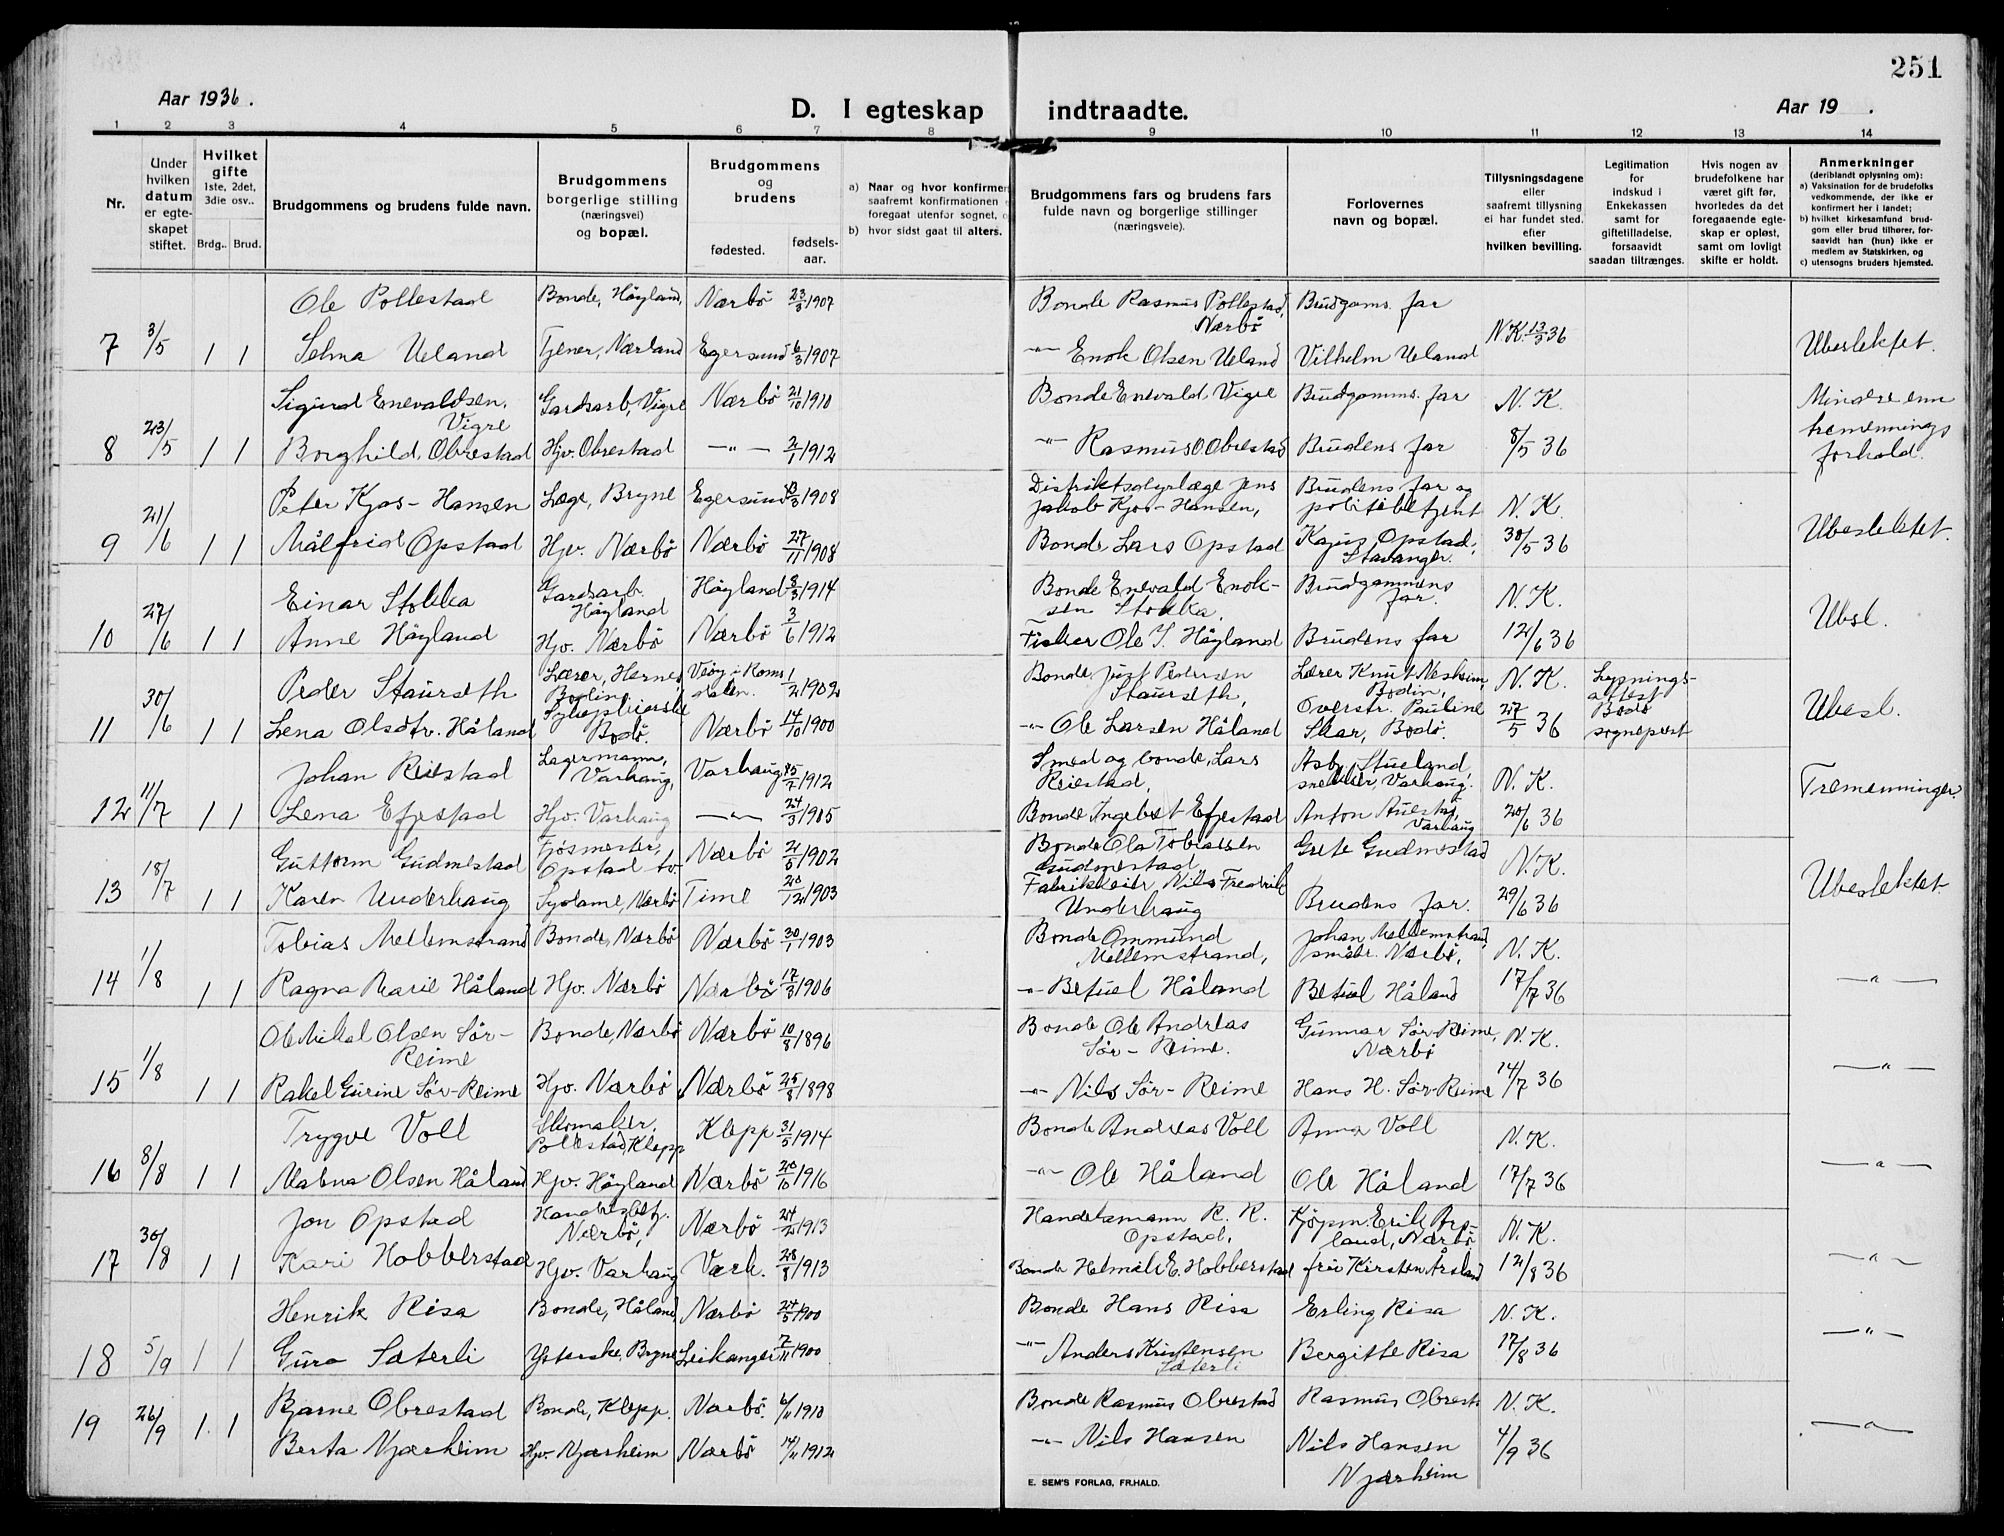 251
Aar 1936.
D. I egteskap indtraadte.
Aar 19 .
1 2 3 4 5 6 7 8 9 10 11 12 13 14
Nr.
Under hvilken datum er egteskapet stiftet.
Hvilket gifte 1ste, 2det, 3die osv..
Brdg.. Brud.
Brudgommens og brudens fulde navn.
Brudgommens borgerlige stilling (næringsvei) og bopæl.
Brudgommens og brudens
fødested.
fødsels-aar.
a) Naar og hvor konfirmer
saafremt konfirmationen
foregaat utenfor sognet,
b) hvor sidst gaat til alters.
Brudgommens fars og brudens fars
fulde navn og borgerlige stillinger
(næringsveie).
Forlovernes
navn og bopæl.
Tillysningsdagene
eller
saafremt tillysning
ei har fundet sted.
efter
hvilken bevilling.
Legitimation
for
indskud i
Enkekassen
samt for
giftetilladelse,
forsaavidt
saadan tiltrænges.
Hvis nogen av
brudefolkene har
været gift før,
hvorledes da det
foregaaende egte-
skap er opløst,
samt om lovligt
skifte er holdt.
Anmerkninger
(deriblandt oplysning om):
a) Vaksination for de brudefolks
vedkommende, der ikke er
konfirmert her i landet;
b) hvilket kirkesamfund brud-
gom eller brud tilhører, for-
saavidt han (hun) ikke er
medlem av Statskirken, og
c) utensogns bruders hjemsted.
Ole Pollestad Bonde, Høyland, Nærbø 23/3 1907 Bonde Rasmus Pollestad, Nærbø Brudgoms far
7 3/5 1 1 Selma Ueland Tjener, Nærland Egersund 6/3 1907 -"- Enok Olsen Ueland Vilhelm Ueland N.K. 13/3 36 Ubeslektet.
Sigurd Enevaldsen Vigre Gardsarb, Vigre Nærbø 21/10 1910 Bonde Enevald Vigre Brudgomms. far N. K. Mindre enn
8 23/5 1 1 Borghild Obrestad Hjv. Obrestad -"- 2/1 1912 -"- Rasmus O. Obrestad Brudens far 8/5 36 tremennings forhold.
Peter Kjos-Hansen Læge, Bryne Egersund 1908 Distriktsdyrlæge Jens Jakob Kjos-Hansen, Brudens far og politibetjent N. K.
9 21/6 1 1 Målfrid Opstad Hjv. Nærbø Nærbø 27/11 1908 Bonde Lars Opstad Kajus Opstad, Stavanger. 30/5 36 Ubeslektet.
Einar Stokka Gardsarb. Høyland Høyland 8/3 1914 Bonde Enevald Enoksen Stokka, Brudgommens far. N. K.
10 27/6 1 1 Anne Høyland Hjv. Nærbø Nærbø 3/6 1912 Fisker Ole I. Høyland Brudens far 12/6 36 Ubsl.
Peder Staurseth Lærer, Hernes Bodin, Veøy i Romsdalen. 1/2 1902 Bonde Just Pedersen Staurseth, Lærer Knut Nesheim, Bodin, N. K. Lysningsattest
11 30/6 1 1 Lena Olsdtr. Håland Sykepleierske Bodø. Nærbø 14/10 1900 -"- Ole Larsen Håland Overstr. Pauline Skar, Bodø. 27/5 36 Bodø sogneprest Ubesl.
Johan Reiestad Lagermann, Varhaug, Varhaug 1912 Smed og bonde, Lars Reiestad, Asb. Stueland snekker, Varhaug. N. K.
12 11/7 1 1 Lena Efjestad Hjv. Varhaug -"- 24/3 1905 Bonde Ingebret Efjestad Anton Auestad Varhaug 20/6 36 Tremenninger.
Guttorm Gudmestad Fjøsmester, Opstad tv. Nærbø 2/5 1902 Bonde Ola Tobiassen Gudmestad Grete Gudmestad N. K.
13 18/7 1 1 Karen Underhaug Sydame, Nærbø Time 20/12 1903 Fabrikkeier, Nils Fredrik Underhaug Brudens far. 29/6 36 Ubeslektet
Tobias Mellemstrand Bonde, Nærbø Nærbø 30/1 1903 Bonde Ommund Mellemstrand, Johan Mellemstrand, småbr. Nærbø, N. K.
14 1/8 1 1 Ragna Marie Håland Hjv. Nærbø Nærbø 17/3 1906 -"- Betuel Håland Betuel Håland 17/7 36 -"-
Ole Mikal Olsen Sør-Reime Bonde, Nærbø Nærbø 10/8 1896 Bonde Ole Andreas Sør-Reime. Gunnar Sør-Reime, Nærbø N. K.
15 1/8 1 1 Rakel Gurine Sør-Reime Hjv. Nærbø Nærbø 25/8 1898 -"- Nils Sør-Reime Hans H. Sør-Reime 14/7 36 -"-
Trygve Voll Skomaker, Pollestad, Klepp Klepp 31/5 1914 Bonde Andreas Voll Anna Voll N. K.
16 8/8 1 1 Malena Olsen Håland Hjv. Høyland Nærbø 20/10 1916 -"- Ole Håland Ole Håland 17/7 36 -"-
Jon Opstad Handelsbetj. Nærbø, Nærbø 24/2 1913 Handelsmann R. R. Opstad, Kjøpm. Erik Årsland, Nærbø N. K.
17 30/8 1 1 Kari Hobberstad Hjv. Varhaug Varh. 28/8 1913 Bonde Helmik E. Hobberstad fru Kirsten Årsland 12/8 36 -"-
Henrik Risa Bonde, Håland Nærbø 24/5 1900 Bonde Hans Risa Erling Risa N. K.
18 5/9 1 1 Guro Sæterli Ysterske, Bryne Leikanger 7/11 1900 -"- Anders Kristensen Sæterli Bergitte Risa 17/8 36 -"-
Bjarne Obrestad Bonde, Klepp. Nærbø. 6/11 1910 Bonde Rasmus Obrestad Rasmus Obrest. N. K.
19 26/9 1 1 Berta Njærheim Hjv. Njærheim Nærbø 14/11 1912 -"- Nils Hansen Nils Hansen Njærheim 4/9 36 -"-
E. SEM'S FORLAG, FR.HALD.